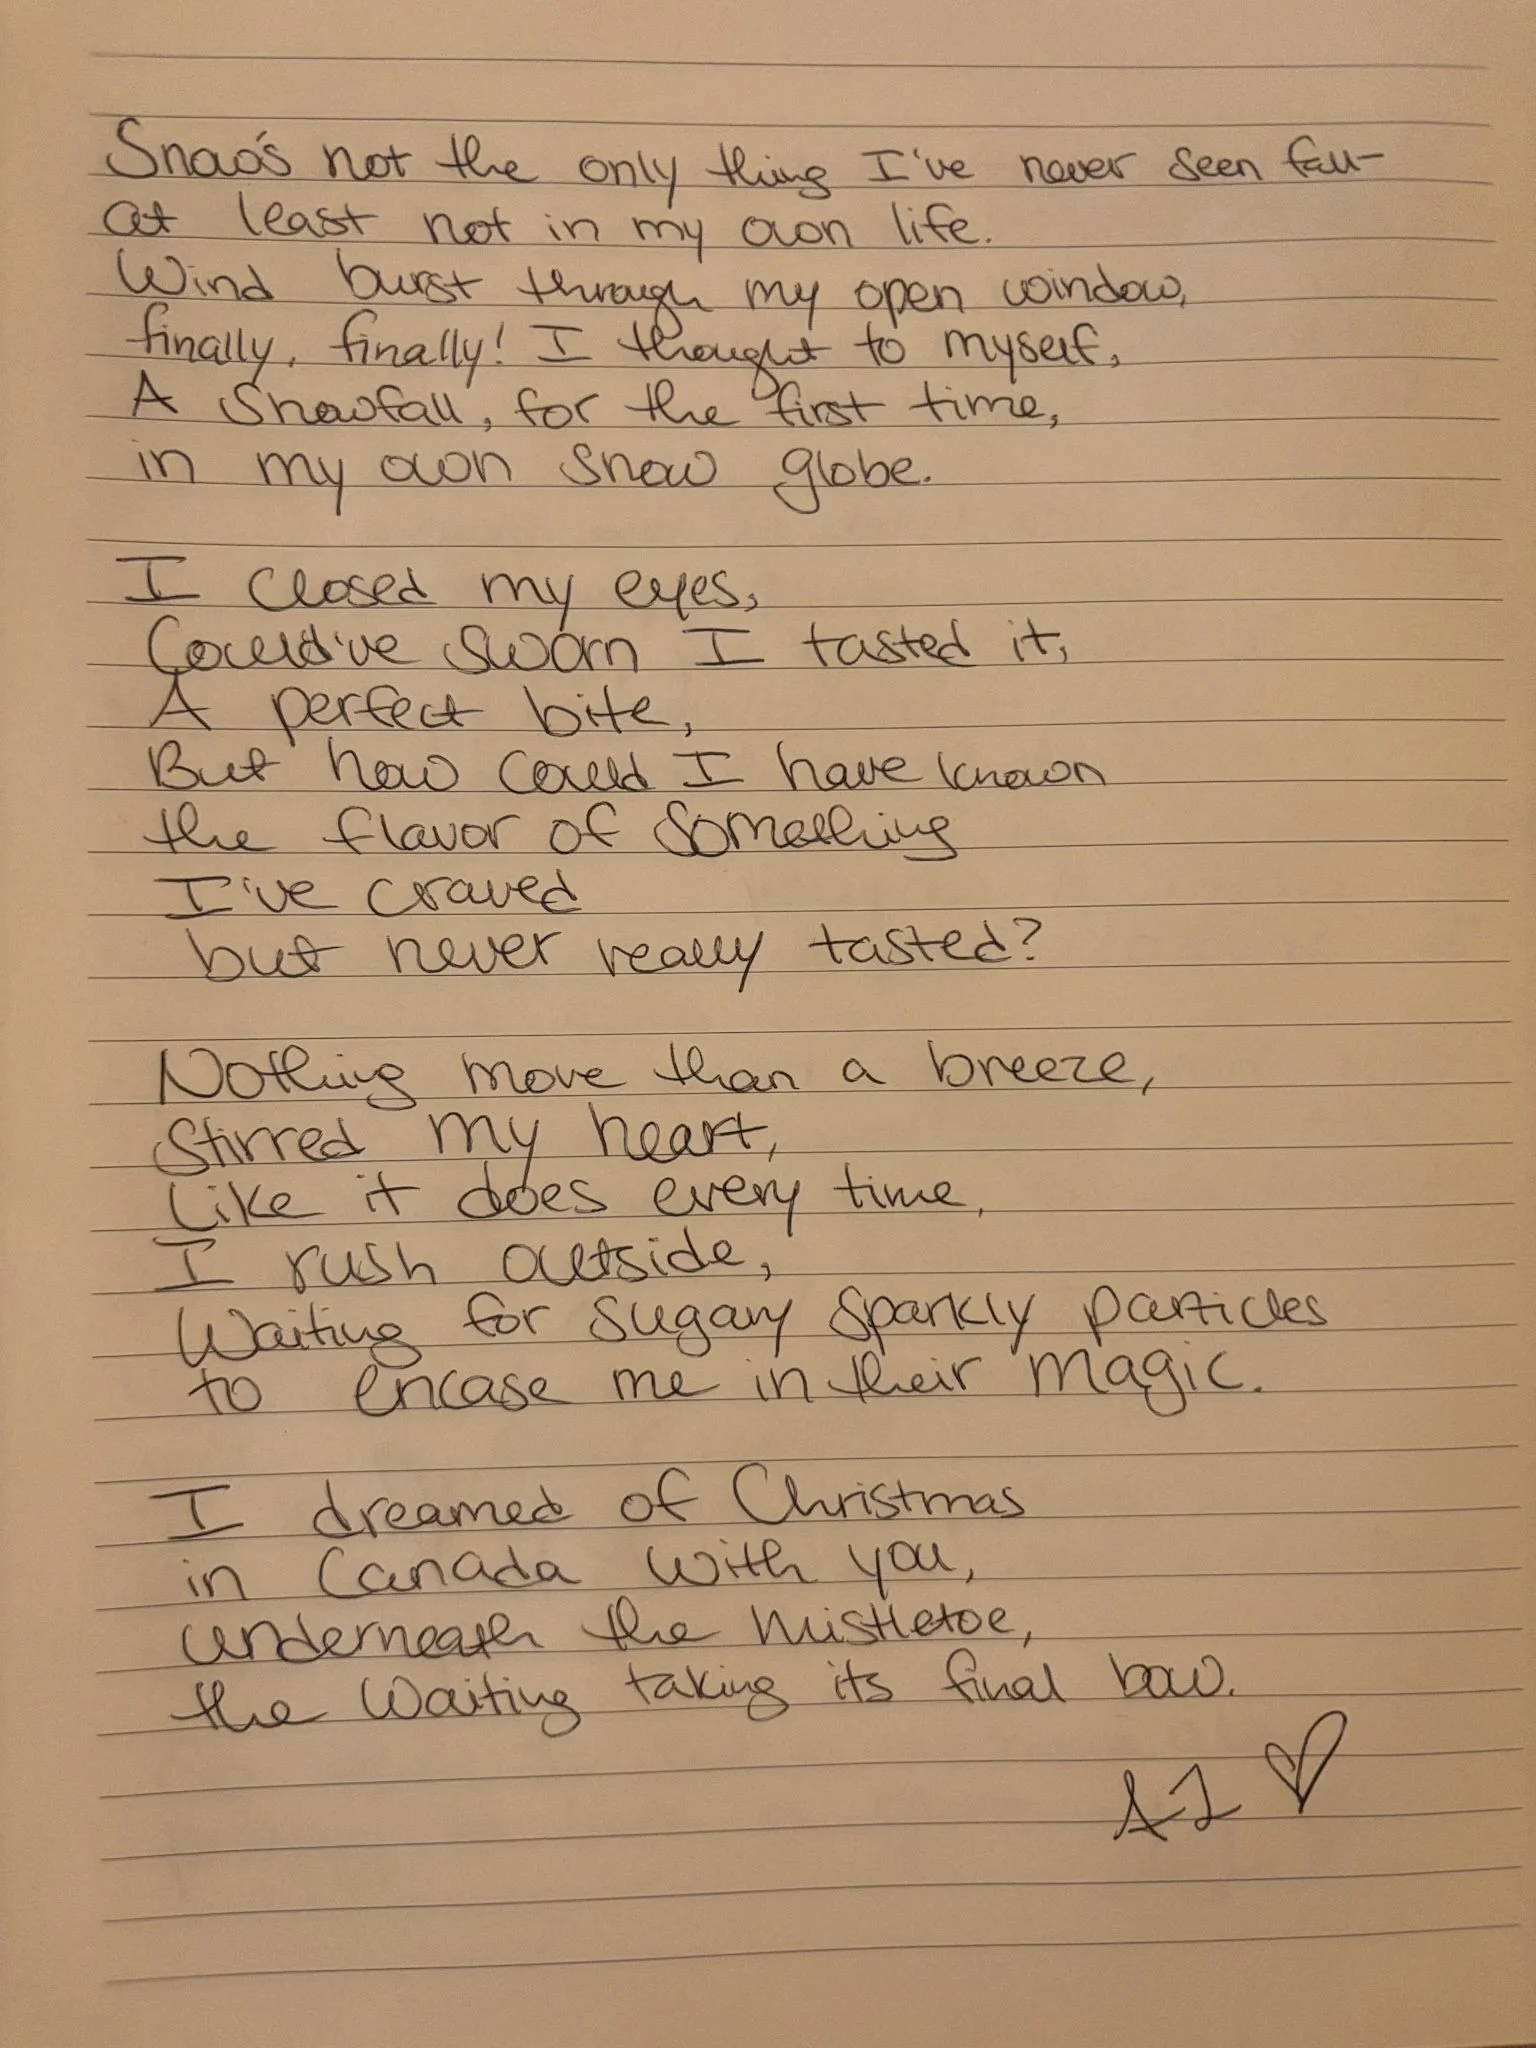 Snow's not the only thing I've never seen fall-
at least not in my own life.
Wind burst through my open window,
finally, finally! I thought to myself,
A Snowfall, for the first time,
in my own snow globe.
I closed my eyes,
Could've sworn I tasted it,
A perfect bite,
But how could I have known
the flavor of something
I've craved
but never really tasted?
Nothing more than a breeze,
Stirred my heart,
Like it does every time,
I rush outside,
Waiting for sugary sparkly particles
to encase me in their magic.
I dreamed of Christmas
in Canada with you,
underneath the mistletoe,
the waiting taking its final bow.